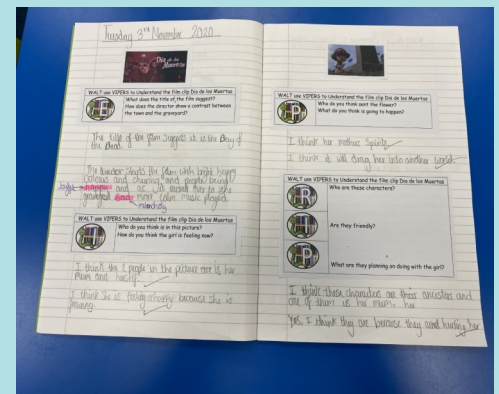 Tuesday 3rd November 2020
Dia de los
Muertos
WALT use VIPERS to Understand the film clip Dia de los Muertos
What does the title of the film suggest?
How does the director show a contrast between
the town and the graveyard?
The title of the film suggests it is the Day of
the Dead.
The director starts the film with bright happy
colours and cheering and people being
and as it moved over to the
graveyard more calm music played
WALT use VIPERS to Understand the film clip Dia de los Muertos
Who do you think is in this picture?
How do you think the girl is feeling now?
I think the people in the picture are is her
Mum and
I think she is feeling because she is
WALT use VIPERS to Understand the film clip Dia de los Muertos
Who do you think sent the flower?
What do you think is going to happen?
I think her mothers Spirit.
I think it will drag her into another world.
WALT use VIPERS to Understand the film clip Dia de los Muertos
Who are these characters?
R
Are they friendly?
What are they planning on doing with the girl?
I think these characters are there ancestors and
one of them is her mum. her
Yes. I think they are because they arent her